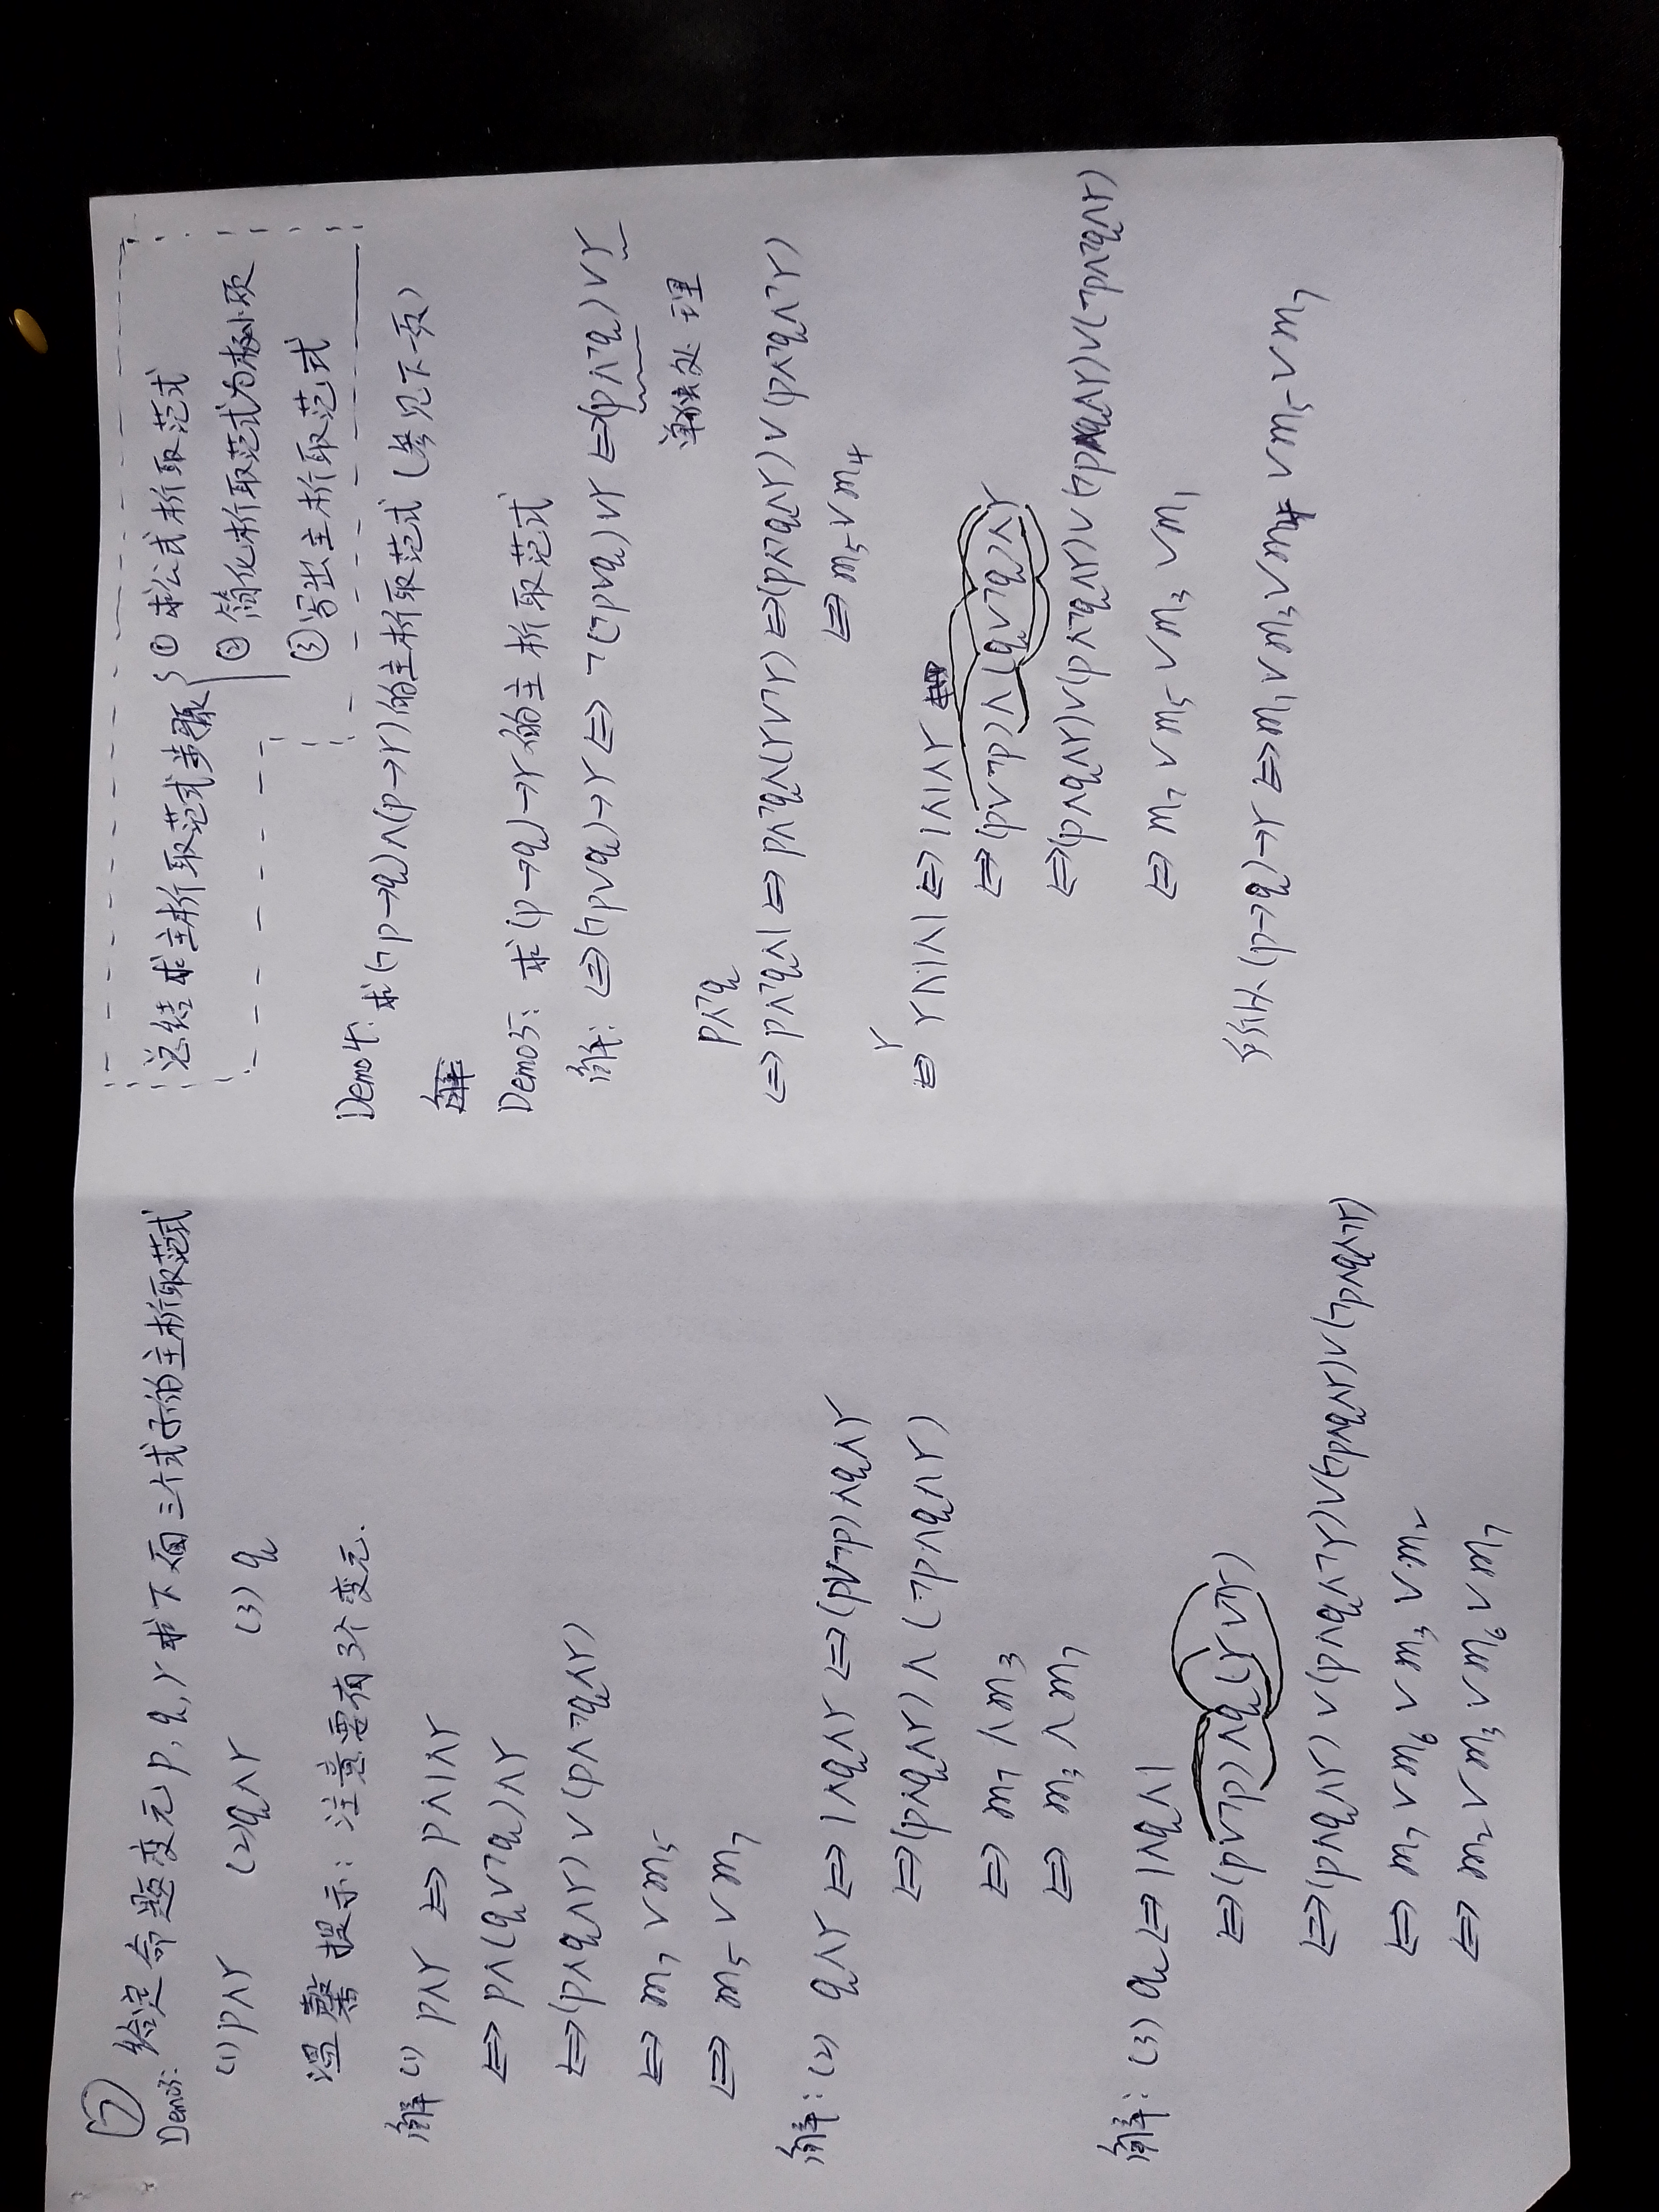 ⑦
Demo3: 给定命题变元p,q,r求下面三个式子的主析取范式
(1) p∧r (2) q∧r (3) q
温馨提示: 注意要有3个变元.
解(1) p∧r ⇔ p∧1∧r
⇔ p∧(q∨¬q)∧r
⇔(p∧q∧r)∨(p∧¬q∧r)
⇔ m₇∨m₅
⇔ m₅∨m₇
解:(2) q∧r ⇔ 1∧q∧r ⇔(p∨¬p)∧q∧r
⇔(p∧q∧r)∧(¬p∧q∧r)
⇔ m₇∧m₃
⇔ m₃∧m₇
解:(3) q⇔1∧q∧1
⇔(p∨¬p)∧q(r∨¬r)
⇔(p∧q∧r)∨(p∧q∧¬r)∨(¬p∧q∧r)∨(¬p∧q∧¬r)
⇔ m₇∨m₆∨m₃∨m₂
⇔ m₂∨m₃∨m₆∨m₇
总结求主析取范式步骤
① 求公式析取范式
② 简化析取范式为极小项
③ 写出主析取范式
Demo4: 求(¬p→q)∧(p→r)的主析取范式(参见下一页)
解
Demo5: 求(p→q)→r的主析取范式
解: ⇔(¬p∨q)→r⇔¬(¬p∨q)∨r⇔(p∧¬q)∨r
单独处理
p∧¬q
⇔ p∧¬q∧1⇔p∧¬q∧(r∨¬r)⇔(p∧¬q∧r)∨(p∧¬q∧¬r)
⇔ m₅∨m₄
r
⇔ r∧1∧1⇔1∧1∧r
⇔(p∨¬p)∧(q∨¬q)∧r
⇔(p∧q∧r)∨(p∧¬q∧r)∨(¬p∧q∧r)∨(¬p∧¬q∧r)
⇔ m₇∨m₅∨m₃∨m₁
所以(p→q)→r⇔m₁∨m₃∨m₄∨m₅∨m₇